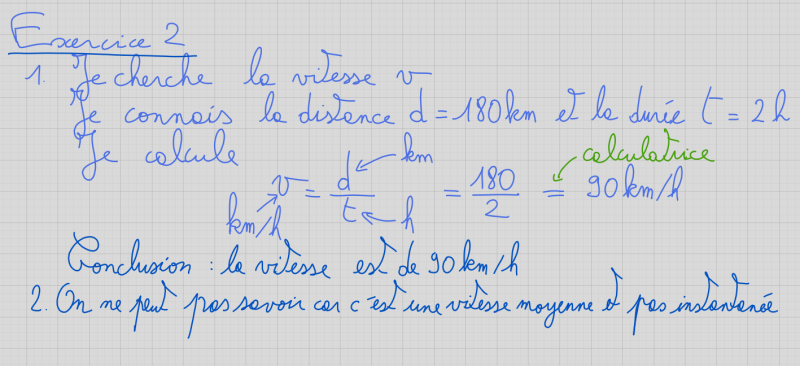 Exercice 2
1. Je cherche la vitesse v
Je connais la distance d = 180 km et la durée t = 2 h
Je calcule
calculatrice
v = d/t = 180/2 = 90 km/h
km
km/h
h
Conclusion : la vitesse est de 90 km/h
2. On ne peut pas savoir car c'est une vitesse moyenne et pas instantanée